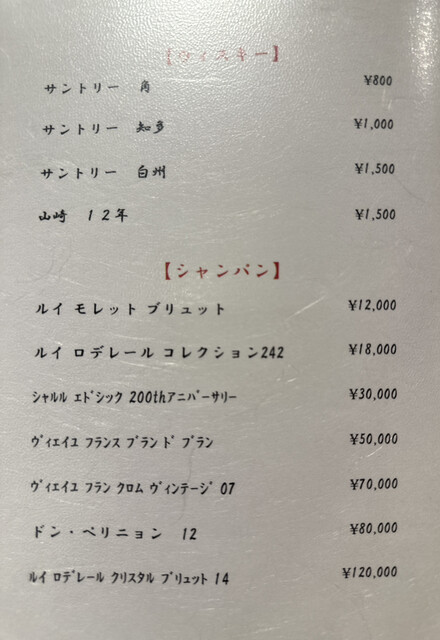 【ウィスキー】
サントリー 角 ¥800
サントリー 知多 ¥1,000
サントリー 白州 ¥1,500
山崎 12年 ¥1,500
【シャンパン】
ルイ モレット ブリュット ¥12,000
ルイ ロデレール コレクション242 ¥18,000
シャルル エドシック 200thアニバーサリー ¥30,000
ヴィエイユ フランス ブラン ド ブラン ¥50,000
ヴィエイユ フラン クロム ヴィンテージ 07 ¥70,000
ドン・ペリニョン 12 ¥80,000
ルイ ロデレール クリスタル ブリュット 14 ¥120,000